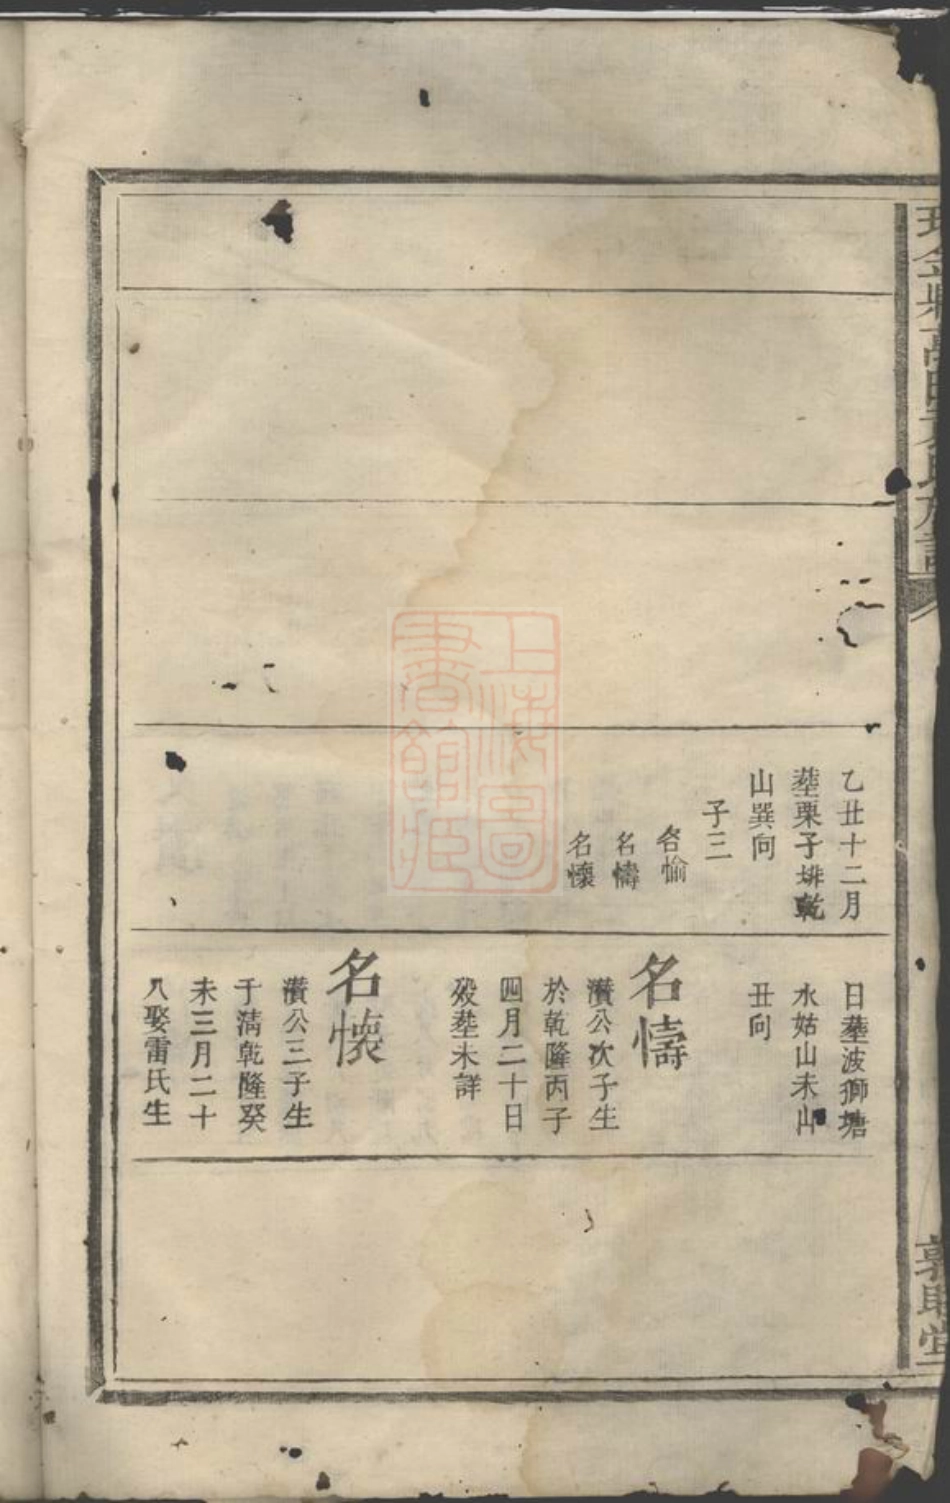 乙丑十二月
塟栗子排乾
山巽向
子三
名愉
名懤
名懷
日塟波獅塘
水姑山未山
丑向
名懤
濽公次子生
於乾隆丙子
四月二十日
殁塟未詳
名懷
濽公三子生
于淸乾隆癸
未三月二十
八娶雷氏生
敦睦堂
上海圖
書館藏